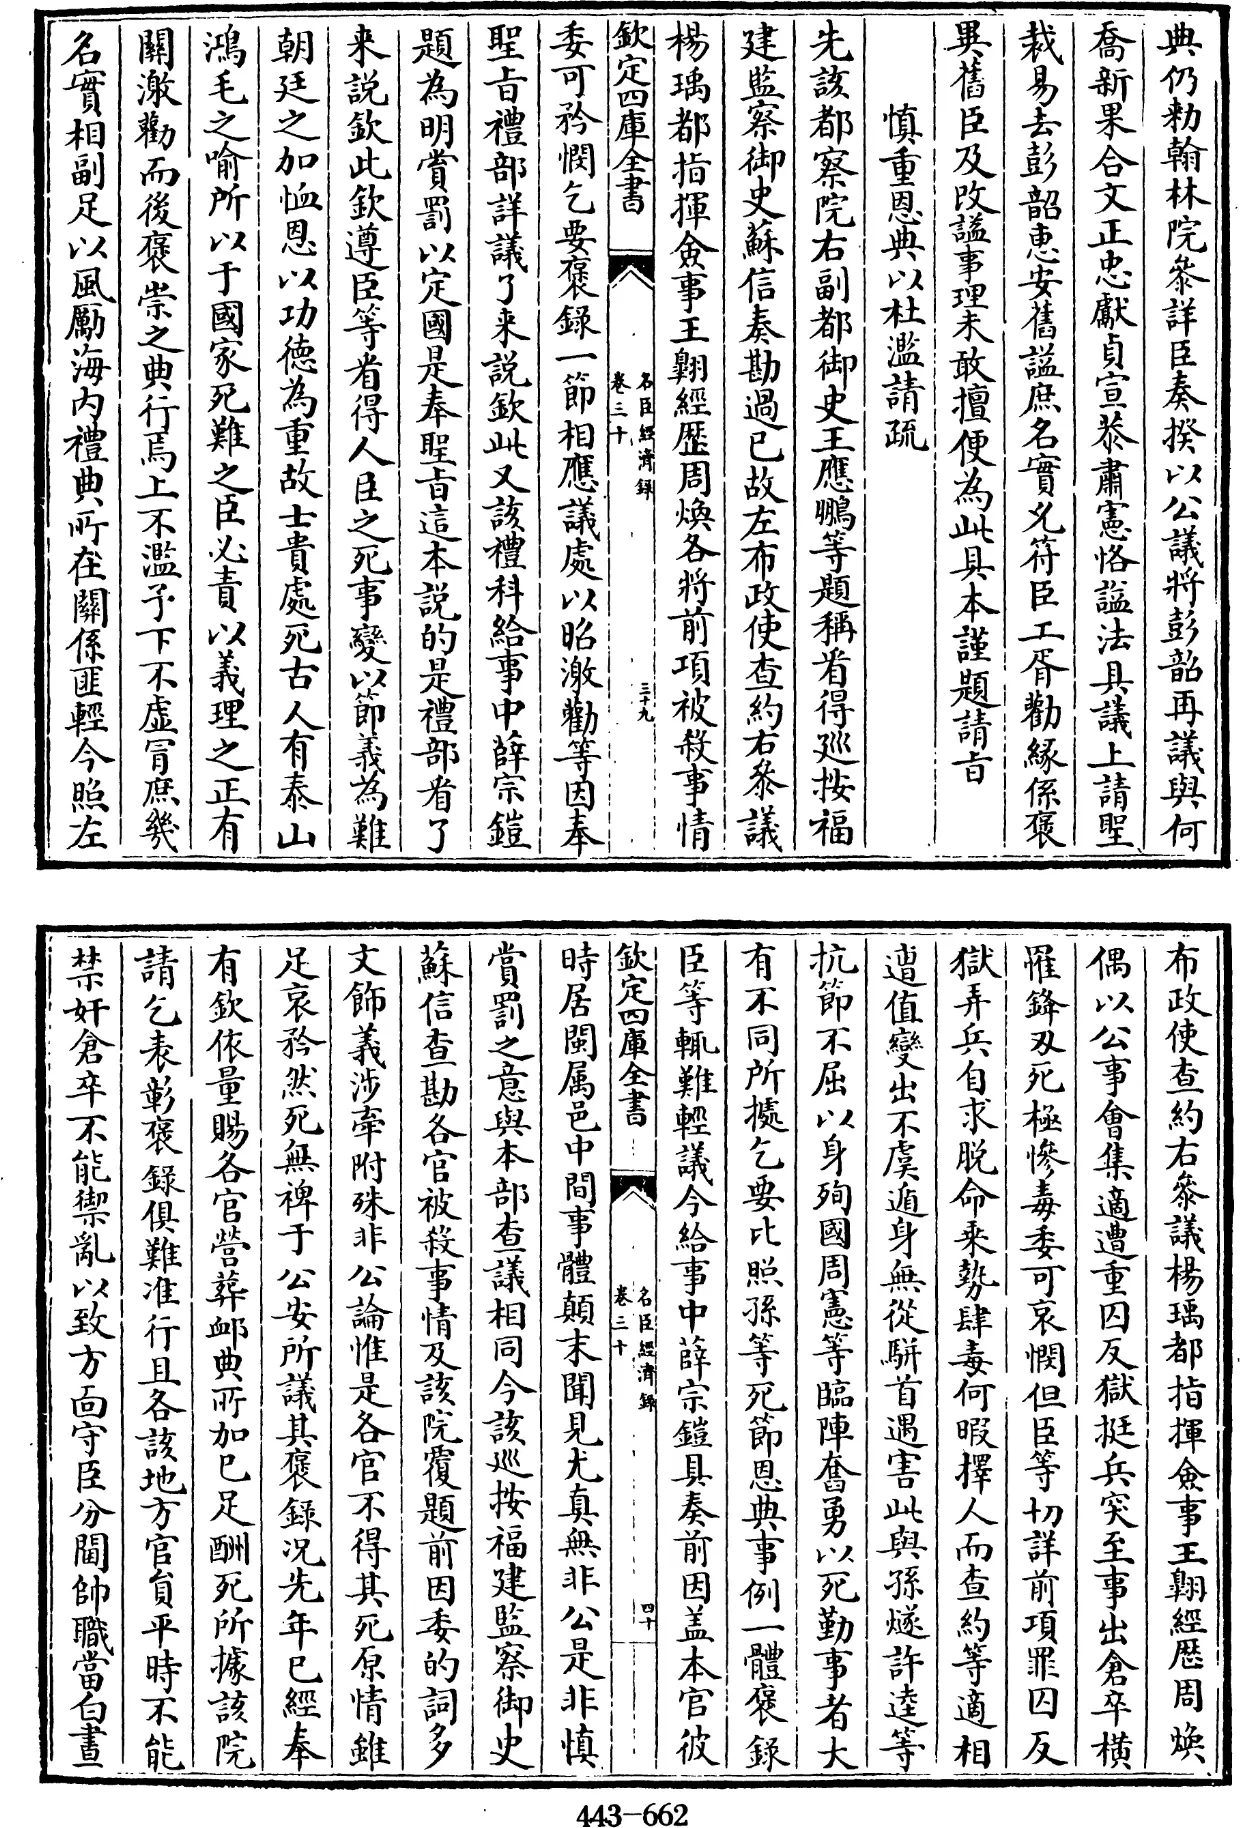 典仍勅翰林院叅詳臣奏揆以公議將彭韶再議與何
喬新果合文正忠獻貞宣恭肅憲恪諡法具議上請聖
裁易去彭韶惠安舊諡庶名實允符臣工胥勸緣係褒
異舊臣及改諡事理未敢擅便為此具本謹題請旨
慎重恩典以杜濫請疏
先該都察院右副都御史王應鵬等題稱看得廵按福
建監察御史蘇信奏勘過已故左布政使查約右叅議
楊瑀都指揮僉事王翺經歷周煥各將前項被殺事情
欽定四庫全書
名臣經濟録
卷三十
三十九
委可矜憫乞要褒録一節相應議處以昭激勸等因奉
聖旨禮部詳議了来説欽此又該禮科給事中薛宗鎧
題為明賞罰以定國是奉聖旨這本説的是禮部看了
来説欽此欽遵臣等看得人臣之死事變以節義為難
朝廷之加恤恩以功德為重故士貴處死古人有泰山
鴻毛之喻所以于國家死難之臣必責以義理之正有
關激勸而後褒崇之典行焉上不濫予下不虛冐庶幾
名實相副足以風勵海內禮典所在關係匪輕今照左
布政使查約右叅議楊瑀都指揮僉事王翺經歷周煥
偶以公事會集適遭重囚反獄挺兵突至事出倉卒橫
罹鋒刃死極慘毒委可哀憫但臣等切詳前項罪囚反
獄弄兵自求脱命乘勢肆毒何暇擇人而查約等適相
遭值變出不虞遁身無從駢首遇害此與孫燧許逵等
抗節不屈以身殉國周憲等臨陣奮勇以死勤事者大
有不同所據乞要比照孫等死節恩典事例一體褒録
臣等輒難輕議今給事中薛宗鎧具奏前因盖本官彼
欽定四庫全書
名臣經濟録
卷三十
四十
時居閩属邑中間事體顛末聞見尤真無非公是非慎
賞罰之意與本部查議相同今該廵按福建監察御史
蘇信查勘各官被殺事情及該院覆題前因委的詞多
文飾義涉牽附殊非公論惟是各官不得其死原情雖
足哀矜然死無裨于公安所議其褒録况先年已經奉
有欽依量賜各官營葬䘏典所加已足酬死所據該院
請乞表彰褒録俱難准行且各該地方官員平時不能
禁奸倉卒不能禦亂以致方面守臣分閫帥職當白晝
443-662